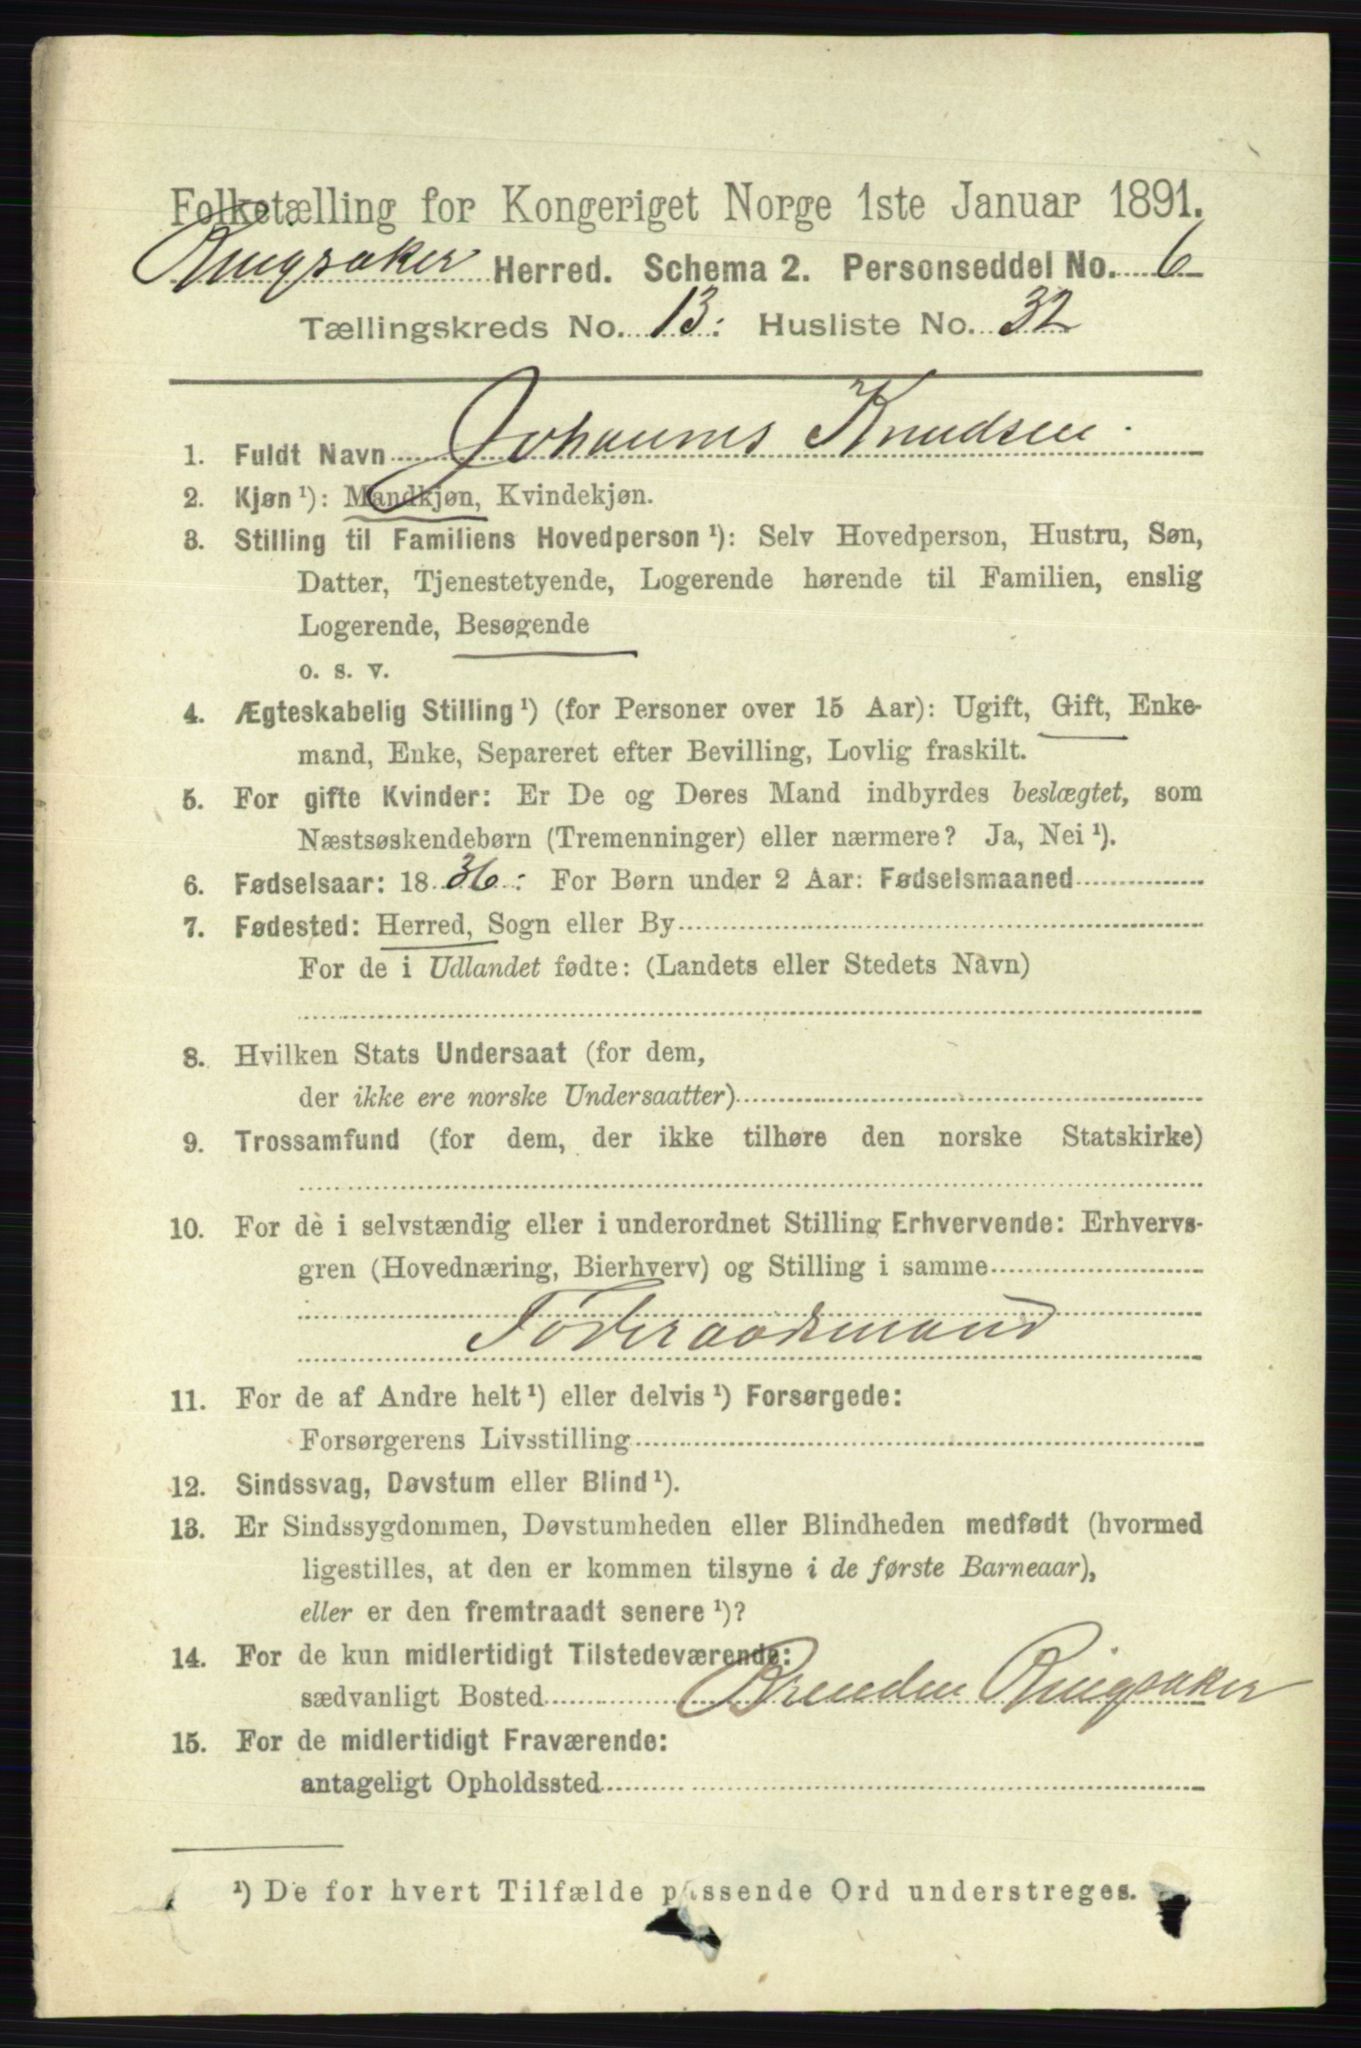 Folketælling for Kongeriget Norge 1ste Januar 1891.
Ringsaker Herred. Schema 2. Personseddel No. 6
Tællingskreds No. 13. Husliste No. 32
1. Fuldt Navn Johannes Knudsen.
2. Kjøn¹): Mandkjøn, Kvindekjøn.
3. Stilling til Familiens Hovedperson¹): Selv Hovedperson, Hustru, Søn,
Datter, Tjenestetyende, Logerende hørende til Familien, enslig
Logerende, Besøgende
o. s. v.
4. Ægteskabelig Stilling¹) (for Personer over 15 Aar): Ugift, Gift, Enke-
mand, Enke, Separeret efter Bevilling, Lovlig fraskilt.
5. For gifte Kvinder: Er De og Deres Mand indbyrdes beslægtet, som
Næstsøskendebørn (Tremenninger) eller nærmere? Ja, Nei¹).
6. Fødselsaar: 1836: For Børn under 2 Aar: Fødselsmaaned
7. Fødested: Herred, Sogn eller By
For de i Udlandet fødte: (Landets eller Stedets Navn)
8. Hvilken Stats Undersaat (for dem,
der ikke ere norske Undersaatter)
9. Trossamfund (for dem, der ikke tilhøre den norske Statskirke)
10. For de i selvstændig eller i underordnet Stilling Erhvervende: Erhvervs-
gren (Hovednæring, Bierhverv) og Stilling i samme
Føderaadsmand
11. For de af Andre helt¹) eller delvis¹) Forsørgede:
Forsørgerens Livsstilling
12. Sindssvag, Døvstum eller Blind¹).
13. Er Sindssygdommen, Døvstumheden eller Blindheden medfødt (hvormed
ligestilles, at den er kommen tilsyne i de første Barneaar),
eller er den fremtraadt senere¹)?
14. For de kun midlertidigt Tilstedeværende:
sædvanligt Bosted Brenden Ringsaker
15. For de midlertidigt Fraværende:
antageligt Opholdssted
¹) De for hvert Tilfælde passende Ord understreges.